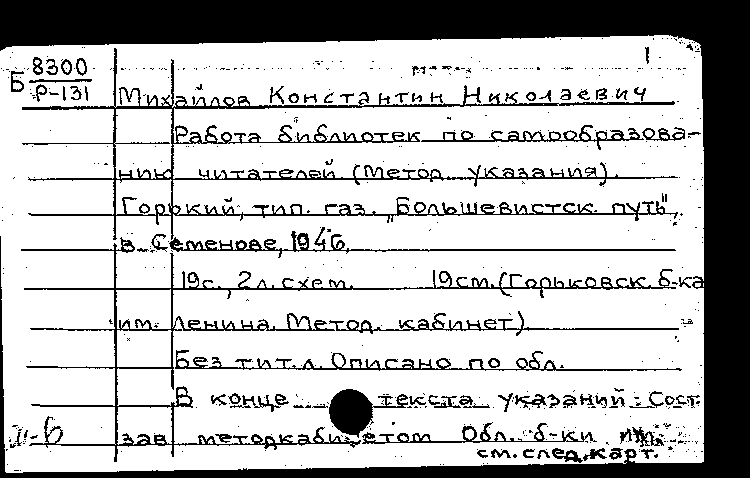 1
Б 8300
Р-131
Михайлов Константин Николаевич
Работа библиотек по самообразова-
нию читателей (Метод. указания).
Горький, тип. газ. „Большевистск. путь",
в Семенове, 1946.
19с., 2л. схем. 19см. (Горьковск. б-ка
им. Ленина. Метод. кабинет).
Без тит. л. Описано по обл.
В конце текста указаний: Сост.
зав методкабинетом Обл. б-ки им.
см. след. карт.